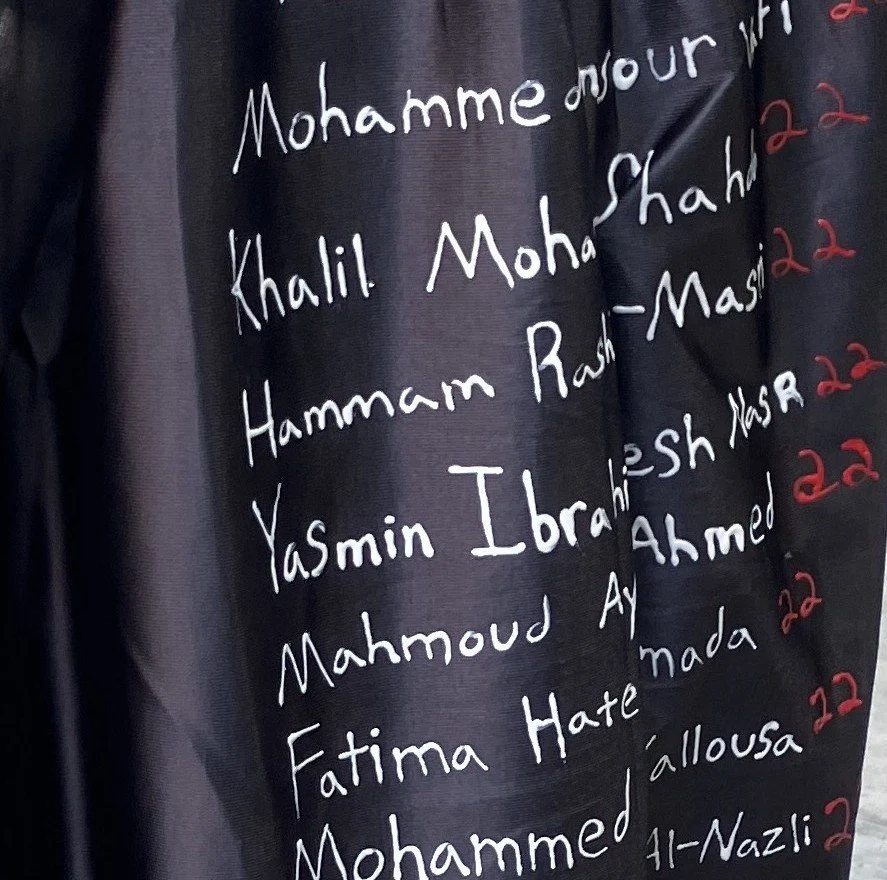 Mohamme
Khalil Moha Shah 22
Hammam Rash -Masri 22
Yasmin Ibrahi esh NasR 22
Mahmoud Ay Ahmed 22
Fatima Hate mada 22
Mohammed allousa 22
Al-Nazli 2